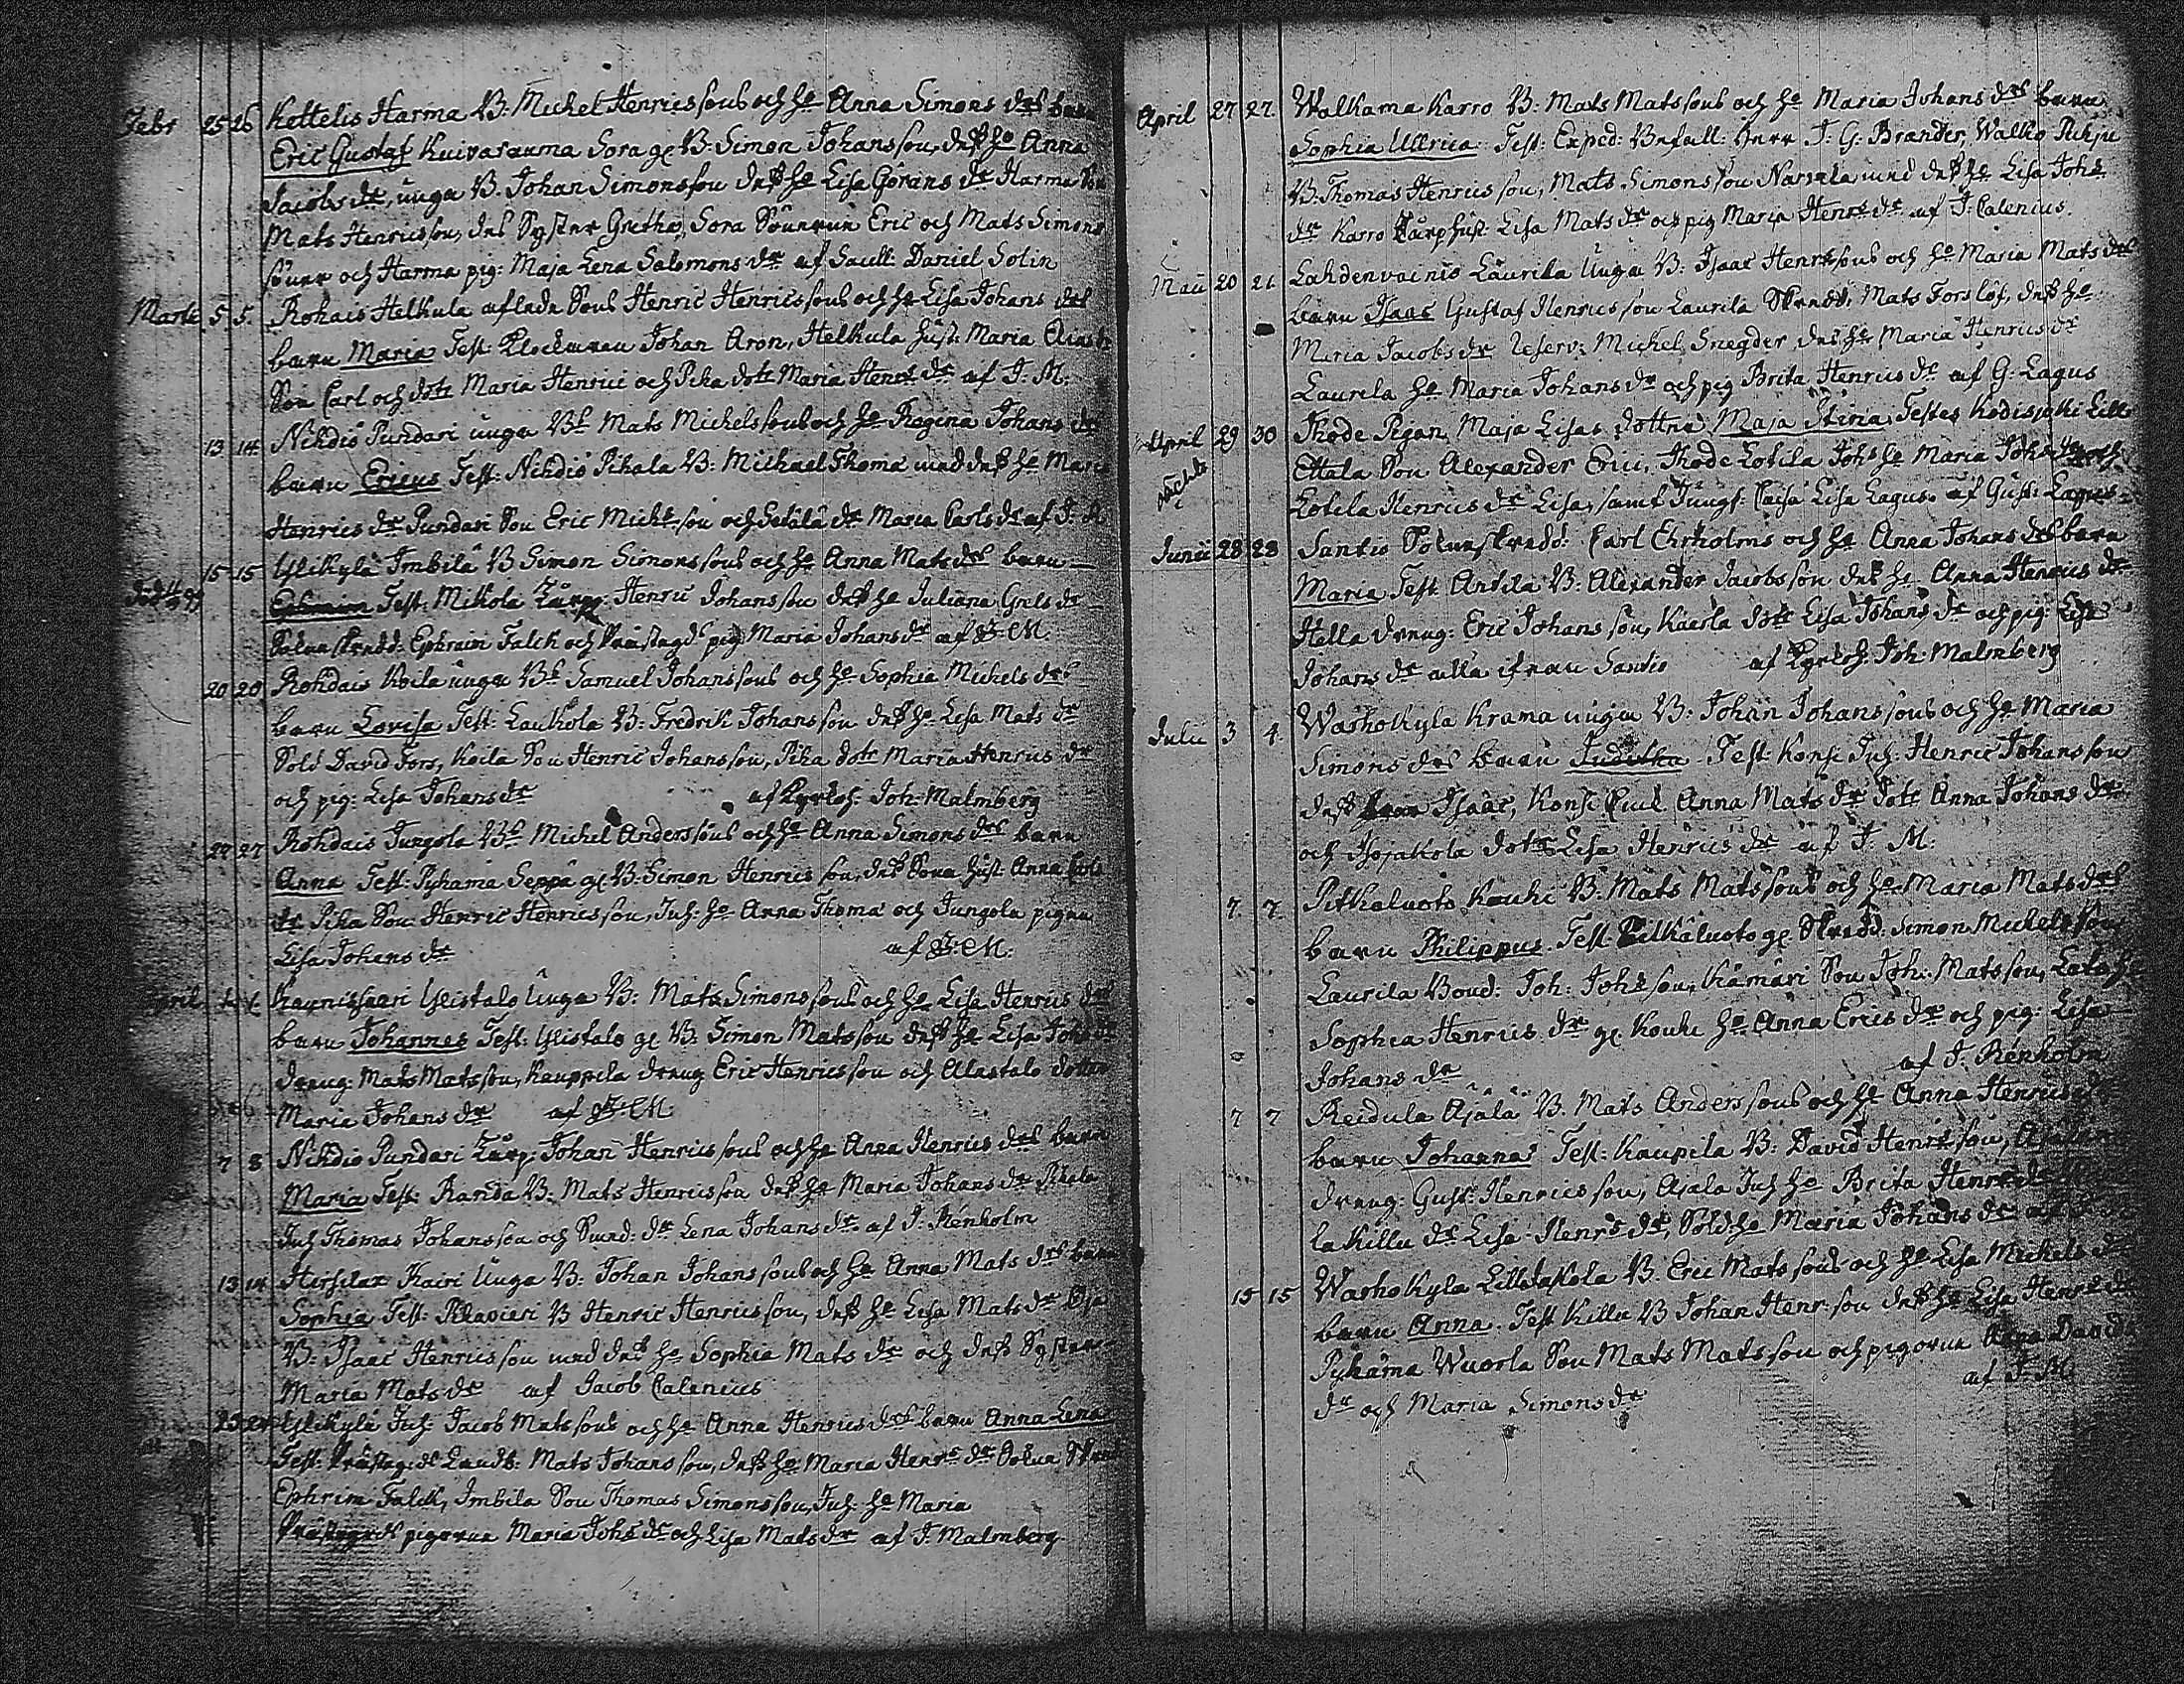 Febr 25 26 Kettelis Harma B: Michel Henrics sons och h: Anna Simons drs barn
Eric Gustaf Kuivarauma Sora gl B: Simon Johansson, dess h: Anna
Jacobs dr, unga B. Johan Simonsson dess h: Lisa Görans dr Harma Son
Mats Henricsson, des Syster Gretha, Sora Sönerne Eric och Mats Simons
söner och Harma pig: Maja Lena Salomons dr af Sacell: Daniel Solin
Martii 5 5. Rohais Helkula afledn Sons Henric Henrics sons och h: Lisa Johans drs
barn Maria Test: Klockaren Johan Aron, Helkula hust: Maria
Son Carl och dotr Maria Henrici och Piha dotr Maria Henrs dr af J. M.
13 14 Nihdiö Pundari unga Bs Mats Michels sons och h: Regina Johans drs
barn Ericus Test: Nihdiö Pihala B: Michael Thomæ med dess h: Maria
Henrics dr Pundari Son Eric Michs son och Setälä dr Maria Carls dr af J. M
15 15 Ylikylä Imbilä B Simon Simons sons och h: Anna Mats drs barn
Test: Mikola Torp: Henric Johansson dess h: Juliana Grels dr
Sokneskrädd: Ephraim Falck och Prästegds pig Maria Johans dr af J. M.
20 20 Rohdais Koila unga Bs Samuel Johans sons och h: Sophia Michels drs
barn Lovisa Test: Laukola B: Fredrik Johansson dess h: Lisa Mats dr
Sold David Fors, Koila Son Henric Johansson, Piha dotr Maria Henrics dr
och pig: Lisa Johans dr af Kyrkoh: Joh: Malmberg
27 27 Rohdais Jungola Bs Michel Anders sons och h: Anna Simons drs barn
Anna Test: Pyhama Seppä gl B: Simon Henrics son, dess Sons hust: Anna Carls
dr Piha Son Henric Henricsson, Inh: h: Anna Thomæ och Jungola pigan
Lisa Johans dr af J. M.
April 1. 1. Kaunissaari Ylistalo Unga B: Mats Simons sons och h: Lisa Henrics drs
barn Johannes Test: Ylistalo gl B: Simon Matsson dess h: Lisa Johs dr
dreng: Mats Matsson, Kauppila dreng Eric Henricsson och Alastalo dotter
Maria Johans dr af J. M.
7 8 Nihdiö Pundari Torp: Johan Henrics sons och h: Anna Henrics drs barn
Maria Test: Randa B: Mats Henricsson dess h: Maria Johans dr Pihala
Inh Thomas Johansson och Pund: dr Lena Johans dr af J: Renholm
13 14 Hirsilax Kairi Unga B: Johan Johans sons och h: Anna Mats drs barn
Sophia Test: Rkavieri B Henric Henricsson, dess h: Lisa Mats dr Oja
B: Isaac Henricsson med dess h: Sophia Mats dr och dess Syster
Maria Mats dr af Jacob Calenius
23 24 Ylikylä Inh: Jacob Mats sons och h: Anna Henrics drs barn Anna Lena
Test: Prästeg:ds Landb: Mats Johansson, dess h: Maria Henrs dr Sokne Skrädd
Ephrim Falck, Imbila Son Thomas Simonsson, Inh: h: Maria
Prästegrds pigorna Maria Johs dr och Lisa Mats dr af J. Malmberg
April 27 27. Walkama Karro B: Mats Mats sons och h: Maria Johans drs barn
Sophia Ullrica Test: Exped: Befall: Herr J. G. Brander, Walko
B. Thomas Henricsson, Mats Simonsson Narvala med dess h: Lisa Johs
dr Karro Torp hust: Lisa Mats dr och pig Maria Henrs dr af J: Calenius.
Maii 20 21 Lahdenvainio Laurila Unga B: Isaac Henrs sons och h: Maria Mats drs
barn Isaac Gustaf Henricsson Laurila Skrädd: Mats Forslöf, dess h:
Maria Jacobs dr Reserv: Michel Snegder des h: Maria Henrics dr
Laurila h: Maria Johans dr och pig Brita Henrics dr af G: Lagus
April 29 30 Thode Pigan Maja Lisas dotter Maja Stina Testes Kodisjoki Lill
Ettala Son Alexander Erici, Thode Lotila Johs h: Maria Johs dr och
Lotila Henrics dr Lisa, samt Jungf: Caisa Lisa Lagus. af Gust: Lagus
Junii 28 28 Santio Sokneskrädd: Carl Ehrholms och h: Anna Johans drs barn
Maria Test: Antila B: Alexander Jacobsson dess h: Anna Henrics dr
Hella dreng: Eric Johansson, Kaurla dotr Lisa Johans dr och pig: Lisa
Johans dr alla ifrån Santio af Kyrkoh. Joh: Malmberg
Julii 3 4. Warhokyla Krama unga B: Johan Johans sons och h: Maria
Simons drs barn Juditha Test Konsi Inh: Henric Johansson
dess Isaac, Konsi Anna Mats dr Dotr Anna Johans dr
och Isojakola dotr Lisa Henrics dr af J. M.
7. 7. Pitkaluoto Kouhi B: Mats Mats sons och h: Maria Mats drs
barn Philippus. Test: Pitkäluoto gl Skrädd: Simon Michelsson
Laurila Bond: Joh: Johsson, Kämäri Son Joh: Matsson,
Sophia Henrics dr gl Kouhi h: Anna Erics dr och pig: Lisa
Johans dr af J. Renholm
7 7 Reidula Ajälä B. Mats Anders sons och h: Anna Henrics
barn Johannes Test: Kaupila B: David Henrsson,
dreng: Gust: Henricsson, Ajala Inh h: Brita Henrs dr
la Killu dr Lisa Henrs dr, Sold: h: Maria Johans dr af
15 15 Warhokyla Lillelakola B. Eric Mats sons och h: Lisa Michels dr
barn Anna. Test Killu B Johan Henrsson dess h: Lisa Henrs dr
Pyhäma Wuorla Son Mats Matsson och pigorna Anna Davids
dr och Maria Simons dr af J. M.